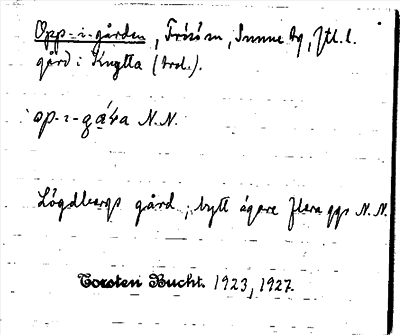 Opp-i-gården, Frösö sn, Sunne tg, Jtl. l.
gård i Knytta (trol.).
op-ɪ-gáɽa N.N.
Lögdbergs gård; bytt ägare flera ggr N.N.
Torsten Bucht. 1923, 1927.